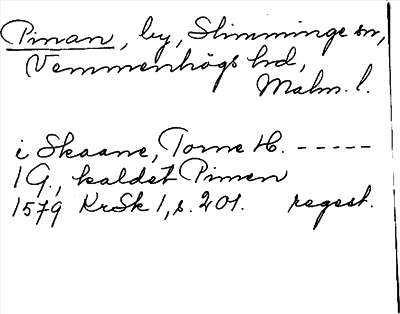 Pinan, by, Slimminge sn,
Vemmenhögs hd,
Malm. l.
i Skaane, Torne H. -----
1 G., kaldet Pimen
1579 KrSk 1, s. 201. regest.